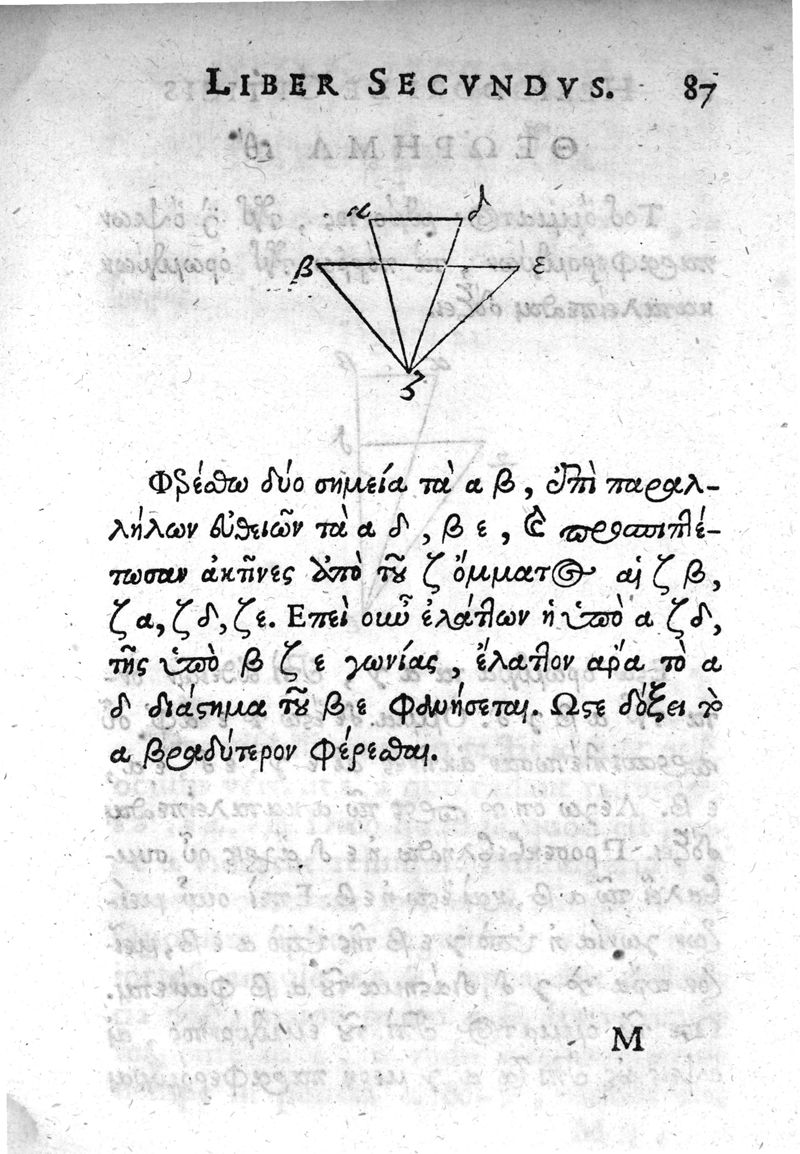 LIBER SECVNDVS. 87
α δ
β ε
ζ
Φερέσθω δύο σημεία τὰ α β, ἐπὶ παραλ-
λήλων εὐθειῶν τὰ α δ, β ε, καὶ προσπιπτέ-
τωσαν ἀκτῖνες ἀπὸ τοῦ ζ ὄμματος αἱ ζ β,
ζ α, ζ δ, ζ ε. Επεὶ οὖν ἐλάττων ἡ ὑπὸ α ζ δ,
τῆς ὑπὸ β ζ ε γωνίας, ἔλαττον αρα τὸ α
δ διάστημα τοῦ β ε φανήσεται. Ωστε δόξει τὸ
α βραδύτερον φέρεσθαι.
M